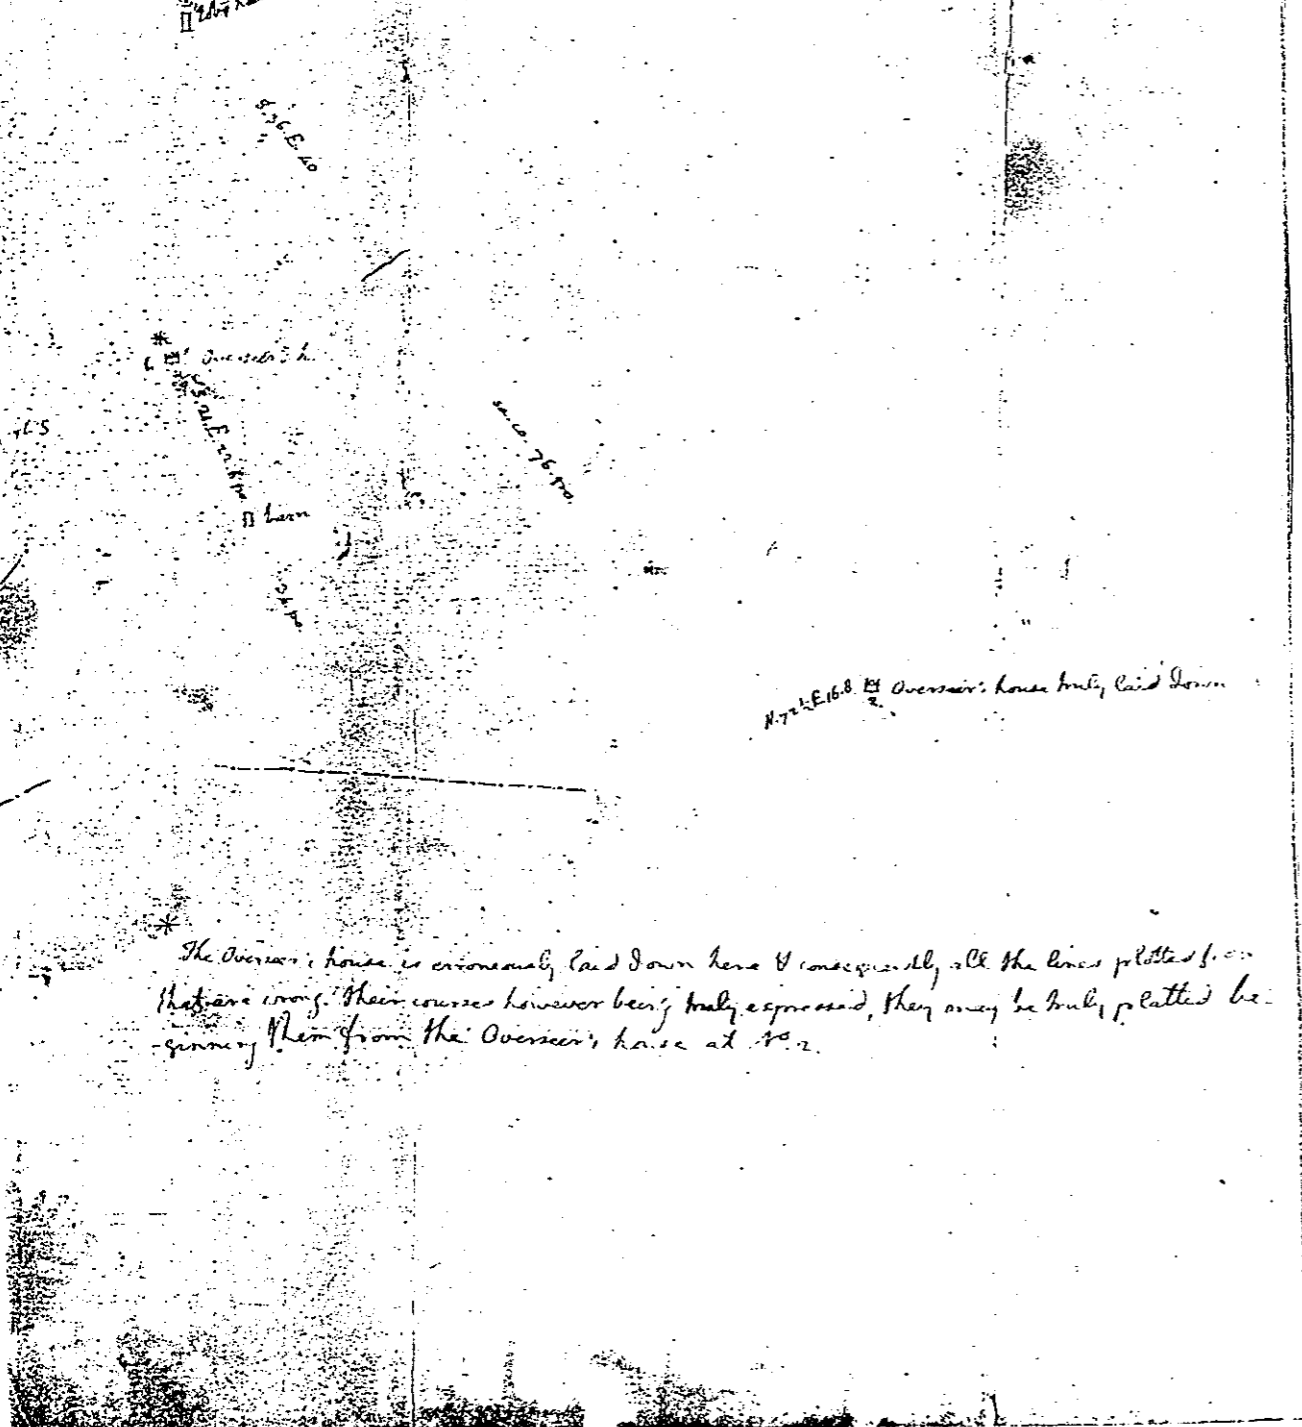 S.76.E.40
* Overseer's h.
S.21.E.22.8 po.
barn
sa. co. 76. po.
34 po.
N.72½.E.16.8 2. Overseer's house truly laid down
*
The Overseer's house is erroneously laid down here & consequently all the lines plotted from
that are wrong. their courses however being truly expressed, they may be truly platted be-
-ginning them from the Overseer's house at No. 2.